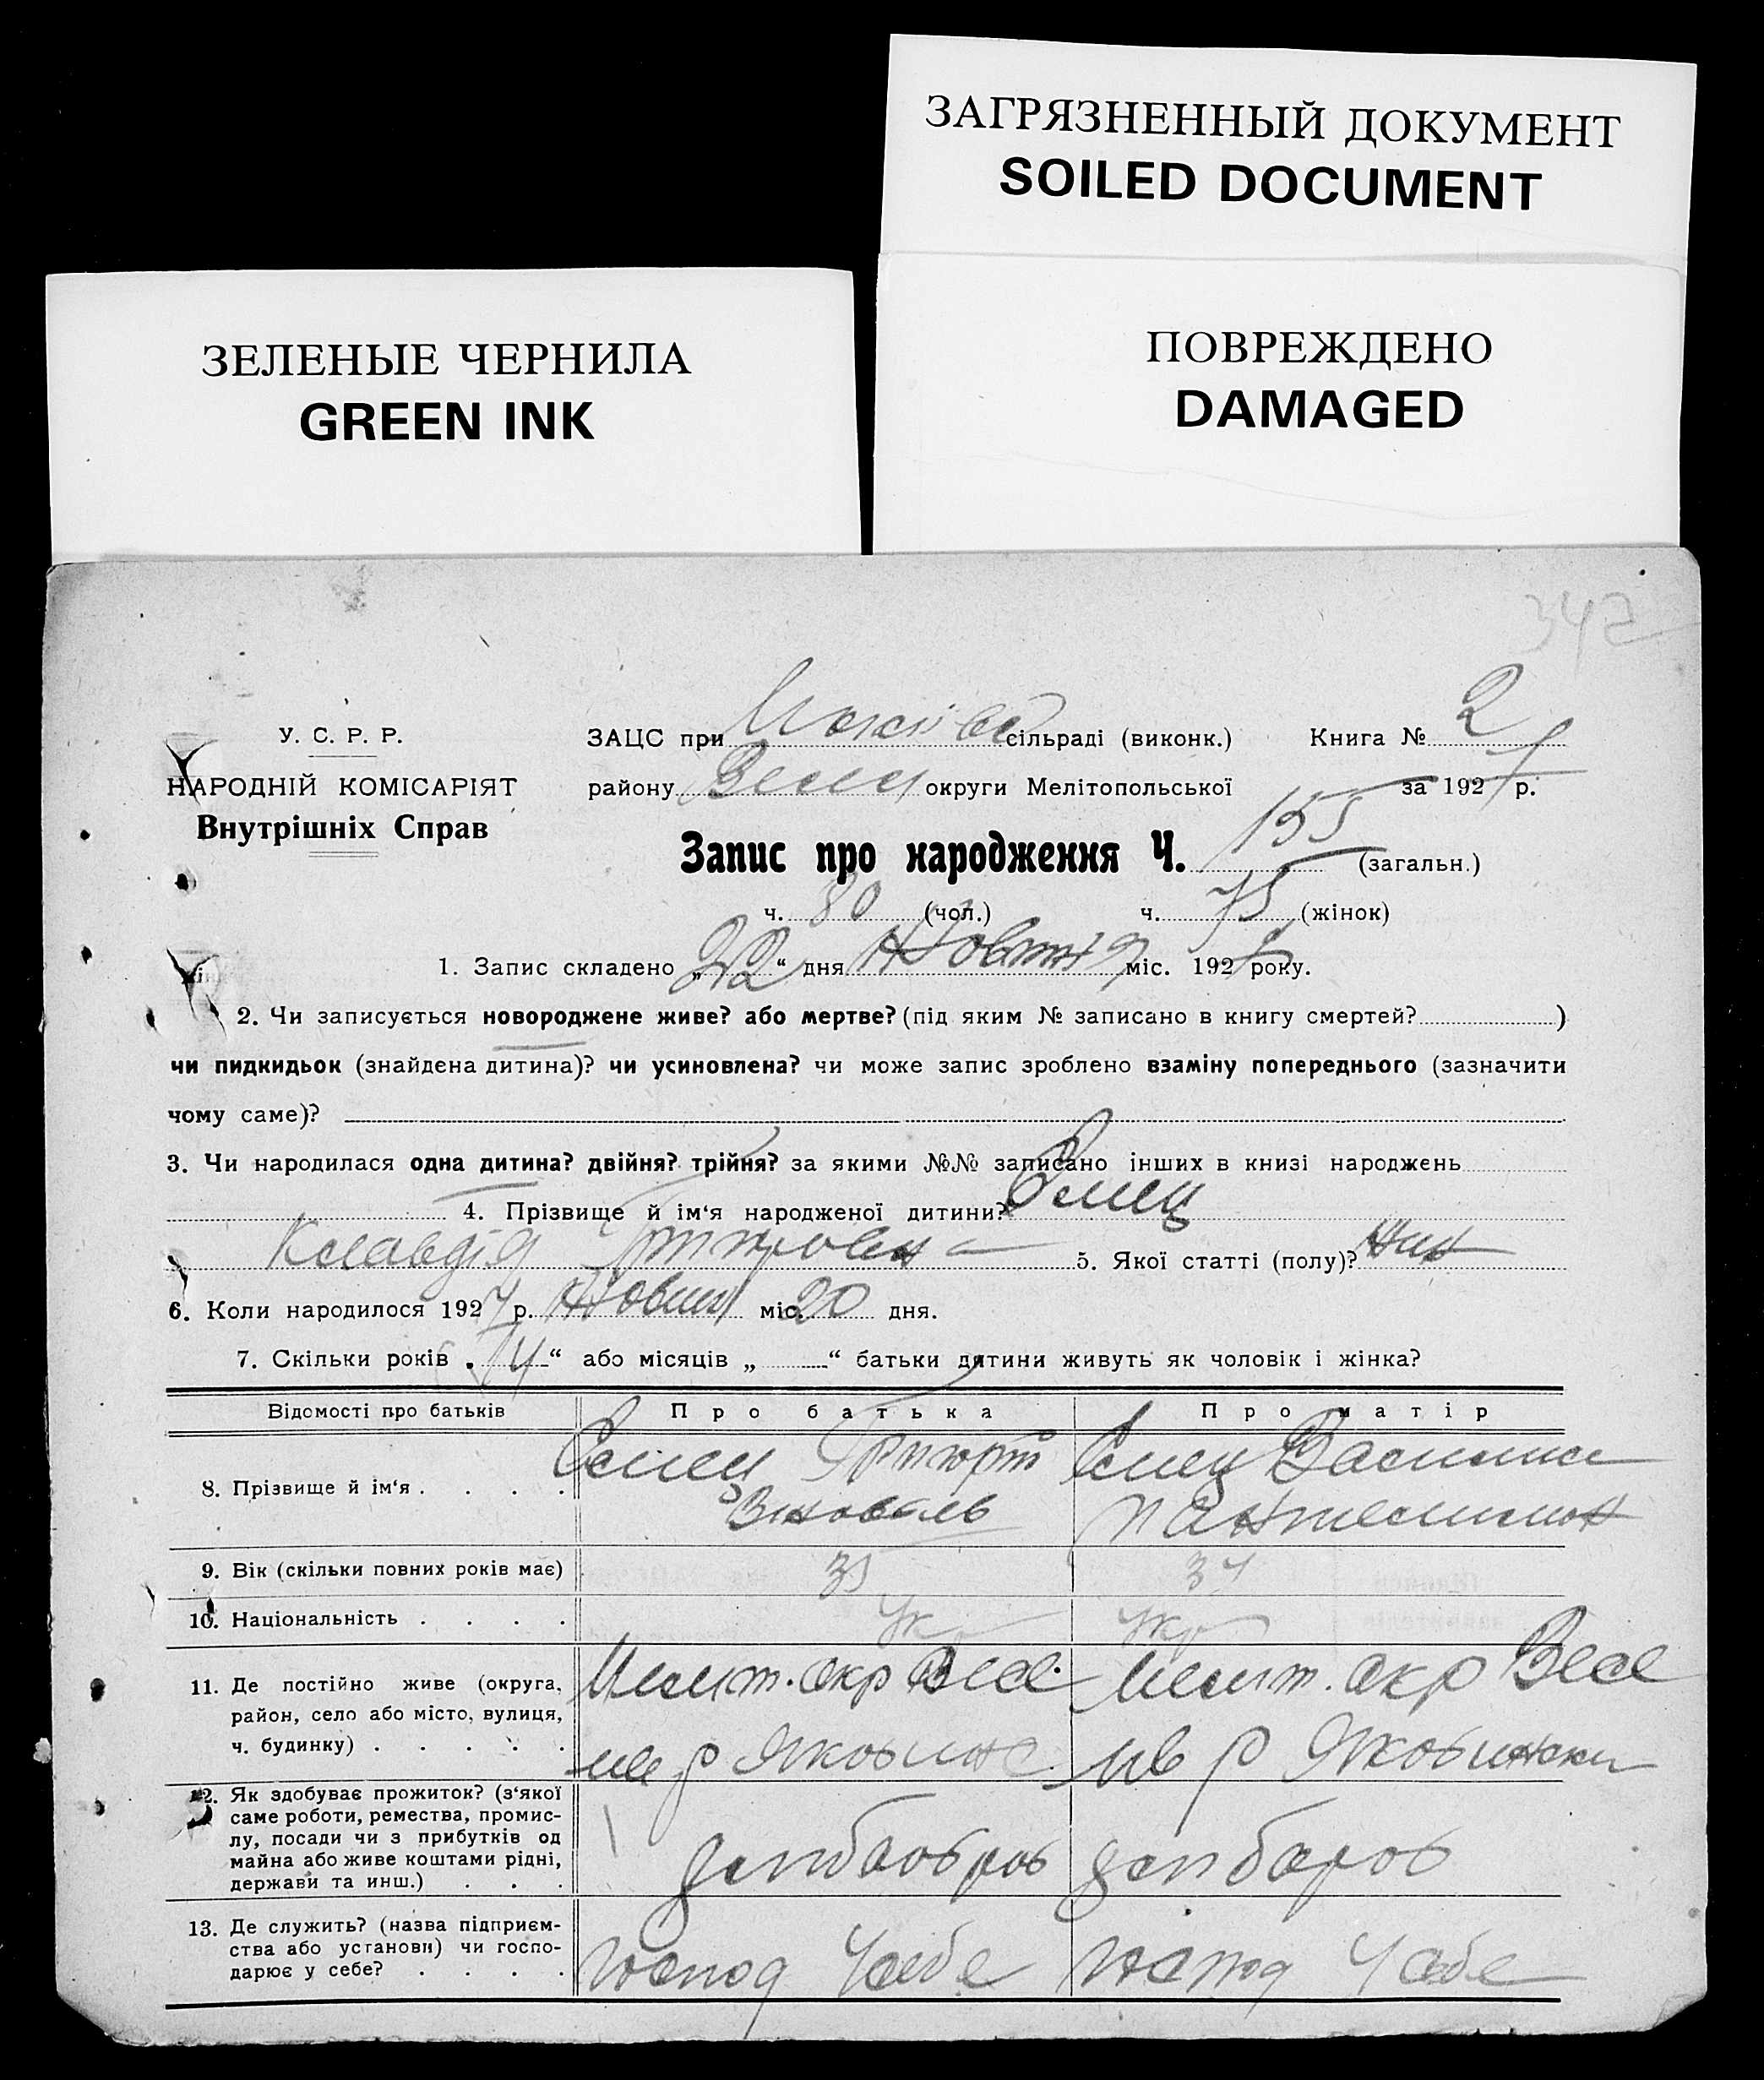 ЗАГРЯЗНЕННЫЙ ДОКУМЕНТ
SOILED DOCUMENT
ЗЕЛЕНЫЕ ЧЕРНИЛА
GREEN INK
ПОВРЕЖДЕНО
DAMAGED
342
У. С. Р. Р.
НАРОДНІЙ КОМІСАРІЯТ
Внутрішніх Справ
ЗАЦС при сільраді (виконк.) Книга № 2
району округи Мелітопольської за 1927 р.
Запис про народження Ч. 155 (загальн.)
ч. 80 (чол.) ч. 75 (жінок)
1. Запис складено „22“ дня Жовтня міс. 1927 року.
2. Чи записується новороджене живе? або мертве? (під яким № записано в книгу смертей? )
чи пидкидьок (знайдена дитина)? чи усиновлена? чи може запис зроблено взаміну попереднього (зазначити
чому саме)?
3. Чи народилася одна дитина? двійня? трійня? за якими №№ записано інших в книзі народжень
4. Прізвище й ім‘я народженої дитини? Емец
Клавдія 5. Якої статті (полу)? Жин
6. Коли народилося 1927 р. Жовтня міс. 20 дня.
7. Скільки років „14“ або місяців „ “ батьки дитини живуть як чоловік і жінка?
Відомості про батьків Про батька Про матір
8. Прізвище й ім‘я . . . . Емец Григорій Емец Василиса
9. Вік (скільки повних років має) 35 34
10. Національність . . . . Укр Укр
11. Де постійно живе (округа, Мелит. окр Весе Мелит. окр Весе
район, село або місто, вулиця,
ч. будинку) . . . . .
12. Як здобуває прожиток? (з‘якої
саме роботи, ремества, промис-
лу, посади чи з прибутків од
майна або живе коштами рідні,
держави та инш.) . . .
13. Де служить? (назва підприєм-
ства або установи) чи госпо-
дарює у себе? . . . .